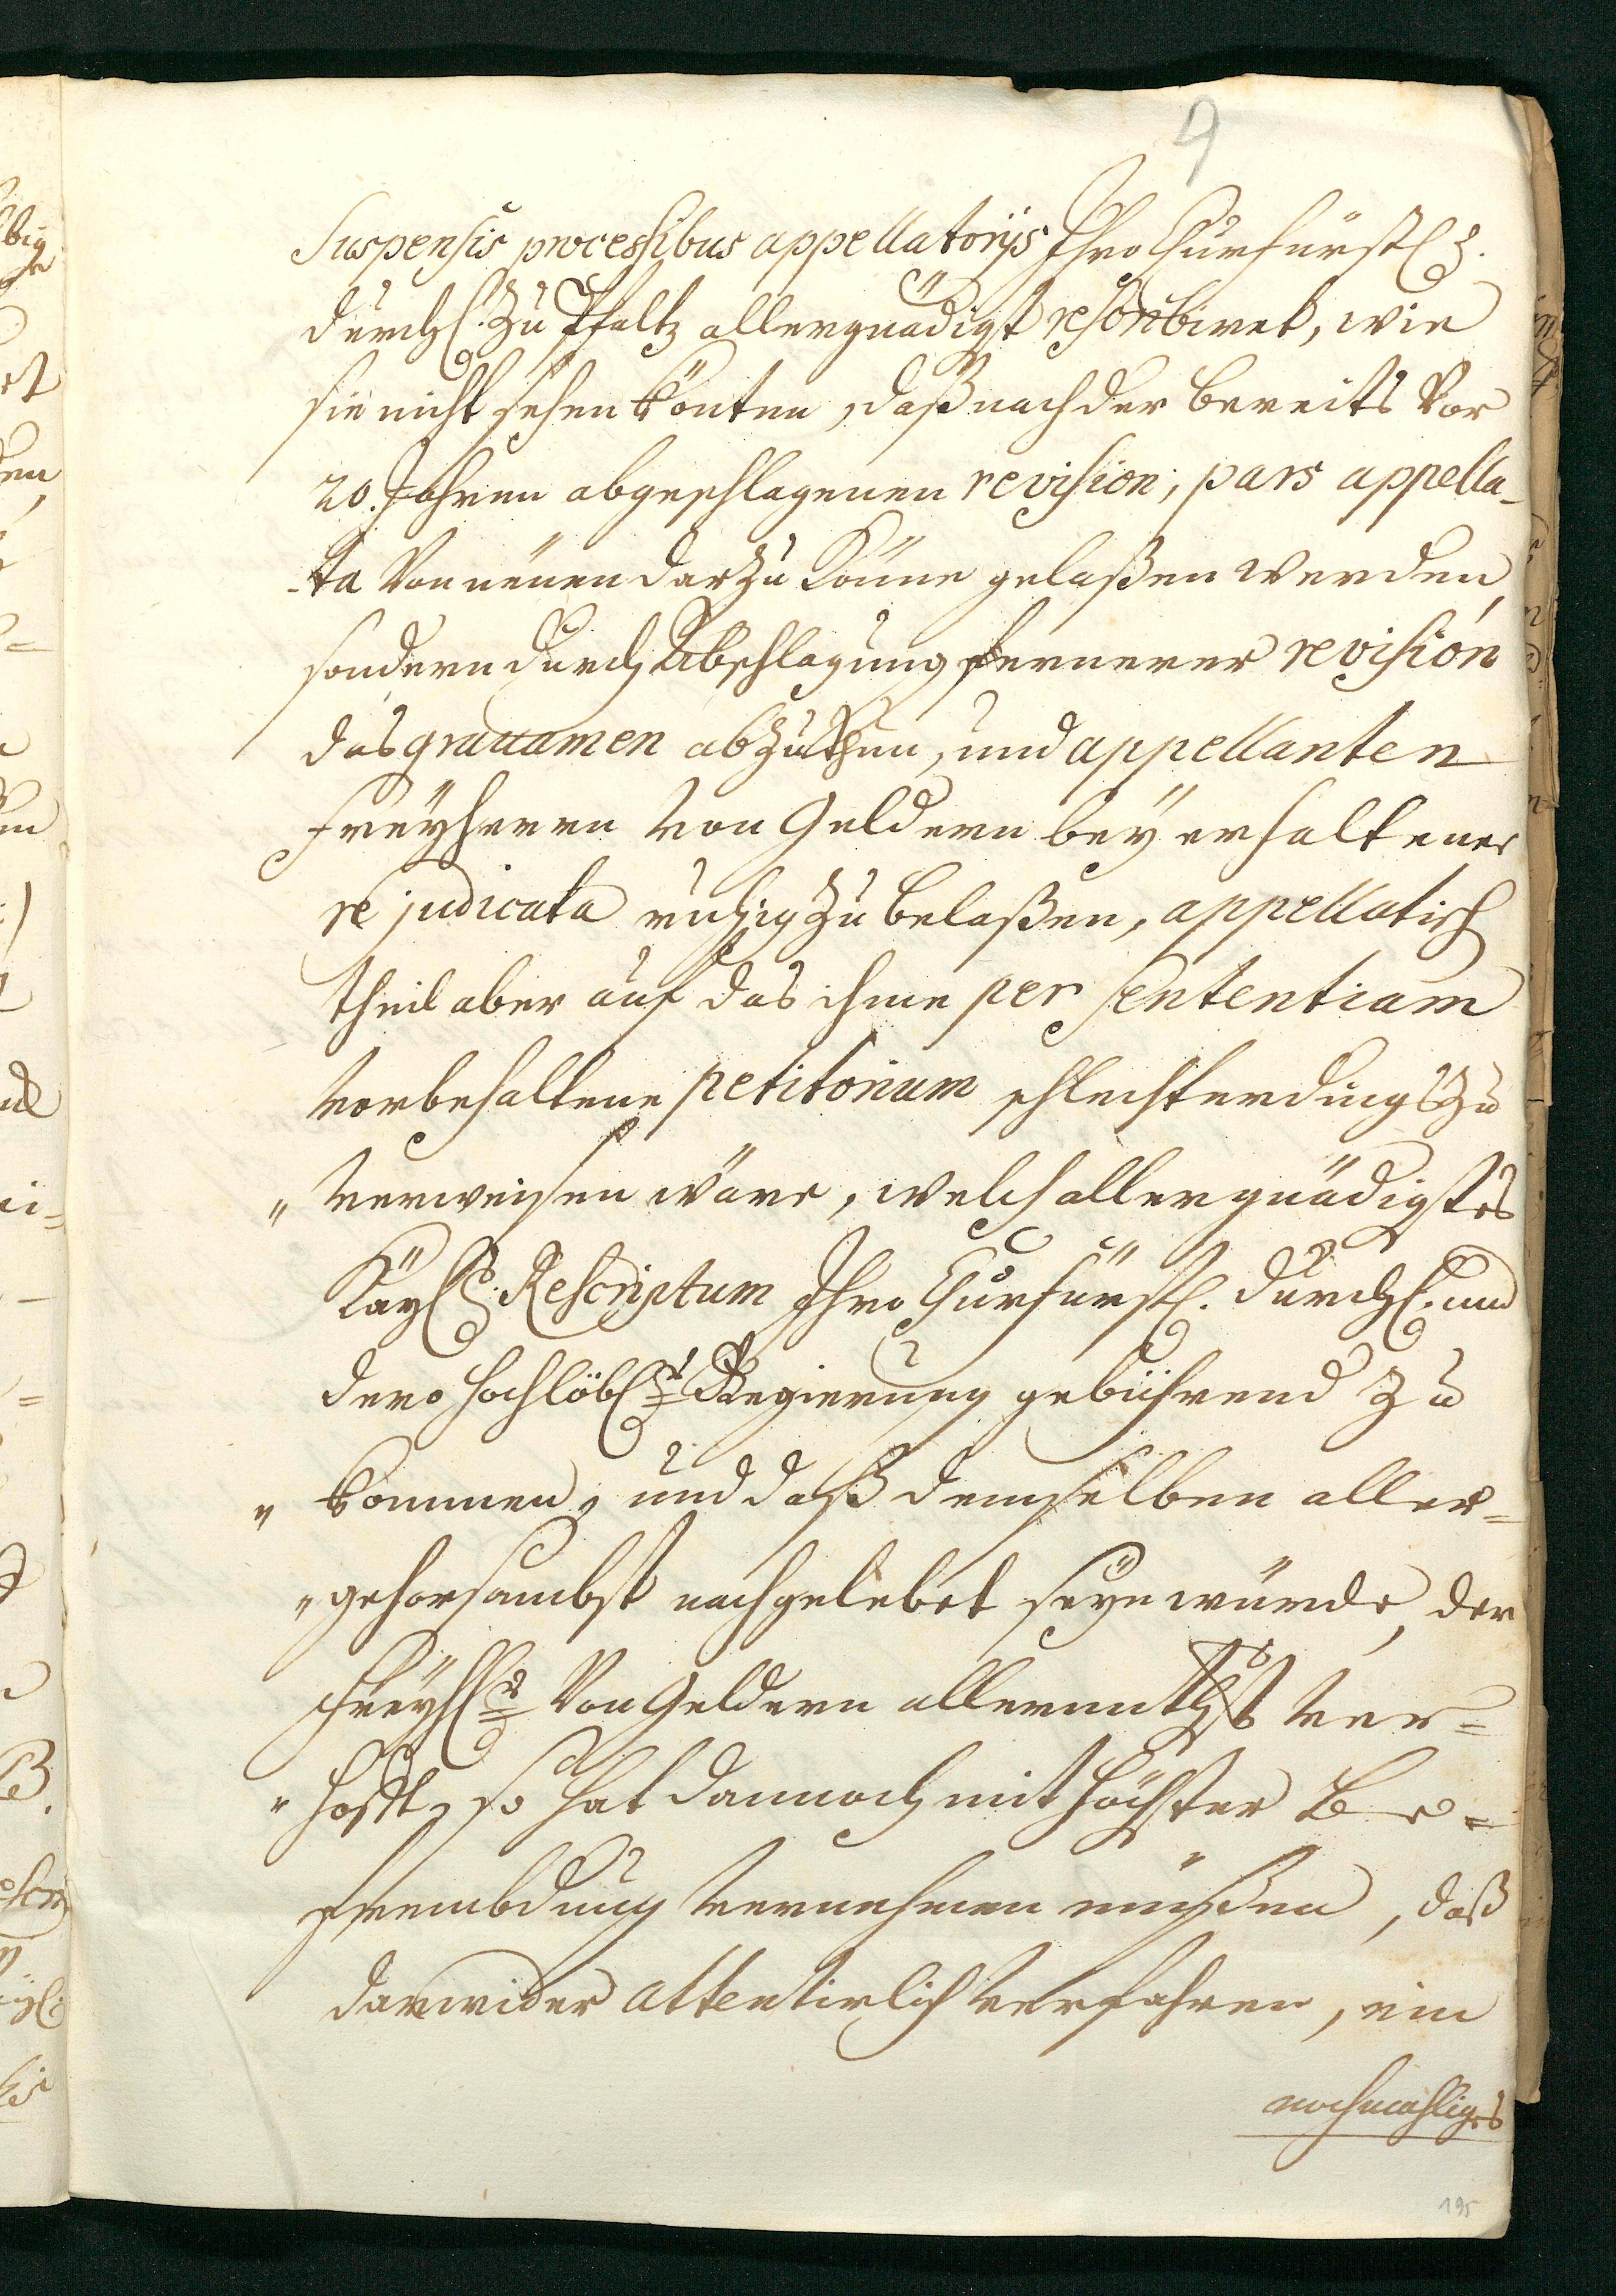 9
Suspensis processibus appellatorijs Ihro Churfürstl.
durchl. zu Pfaltz allergnädigst rescribiret, wie
sie nicht sehen könten, daß nach der bereits vor
20. Jahren abgeschlagenen revision, pars appella-
-ta von neuen darzu könne gelaßen werden,
sondern durch Abschlagung fernerer revision
das gravamen abzuthun, und appellanten
Freyherrn von Geldern bey erhaltener
re judicata ruhig zu belaßen, appellatisch
theil aber auf das ihme per sententiam
vorbehaltene petitorium schlechterdings zu
" verweisen wäre, welch allergnädigstes
Kayßl. Rescriptum Ihro Churfürstl. durchl. und
dero hochlöbl.r Regierung gebührend zu
" kommen, und daß demselben aller=
" gehorsambst nachgelebet seyn würde, der
Freyh.r von Geldern allerunthgst ver=
" hofft, so hat dannoch mit höchster Be=
frembdung vernehmen müßen, daß
darwider attentirlich verfahren, ein
nochmahliges
195